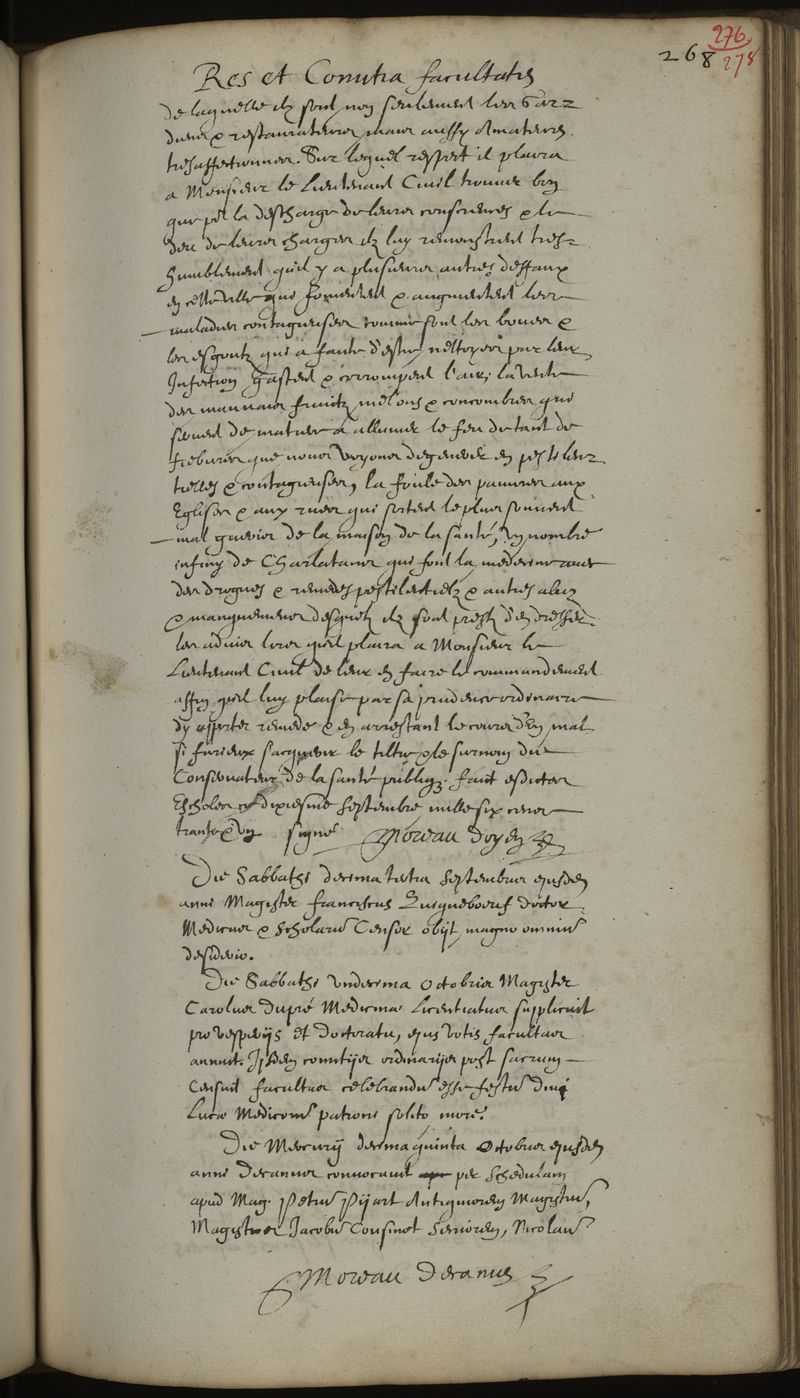 268
276
278
Res et Comitia facultatis
de laquelle ilz sont non seulement les Gar=
diens & restaurateurs, mais aussy Amateurs
tresaffectionnez. Sur lequel respect il plaira
a Monsieur le Lieutenant Civil trouver bon
que pour la descharge de leurs consciences & le
deu de leurs charges ilz luy remonstrent tres=
humblement qu'il y a plusieurs autres deffaux
en cette ville qui fomentent & augmentent les
maladies contagieuses comme sont les boues &
les esgoutz qui a faute d'estre nettoyez par leur
Infection gastent & corrompent l'air, la vente
des mauvais fruitz, melons & concombres qui
servent de matiere a allumer le feu de tant de
fiebures que nous voyons degenerer en pestilen=
tielles & contagieuses, la foule des pauvres aux
Eglises & aux rues qui sortent le plus souvent
mal gueris de la maison de la santé, un nombre
infiny de Charlatans qui font la medecine avec
des drogues & remedes pestilentielz & autres abus
& manquemens desquelz ilz sont prestz d'en dresser
les advis lors qu'il plaira a Monsieur le
Lieutenant Civil de leur en faire le commandement
affin qu'il luy plaise par sa prudence ordinaire
d'y apporter remede & en arrestant le cours d'un mal
si furieux s'acquerir le tiltre & le surnom de
Conservateur de la santé publiq. fait esdictes
Escholes ce dixiesme Septembre mille six cens
trante & un signé Moreau Doyen
Die Sabbathi decima tertia Septembris ejusdem
anni Magister franciscus Guiqueboeuf doctor
Medicus & scholarū Censor obijt magno omniū
desiderio.
Die Sabbathi undecima Octobris Magister
Carolus Dupré Medicinae Licentiatus supplicuit
pro vesperijs et doctoratu, ejus votis facultas
annuit. Ipsdem comitijs ordinarijs post sacrum
Censuit facultas celebrandū esse festū divi
Lucae Medicorū patroni solito more.
Die Mercurij decima quinta Octobris ejusdem
anni Decanus convocavit per schedulam
apud Mag. Petrū Pijart Antiquiorem Magistrū,
Magistros Jacobū Cousinot Seniorem, Nicolaū
Moreau Decanus